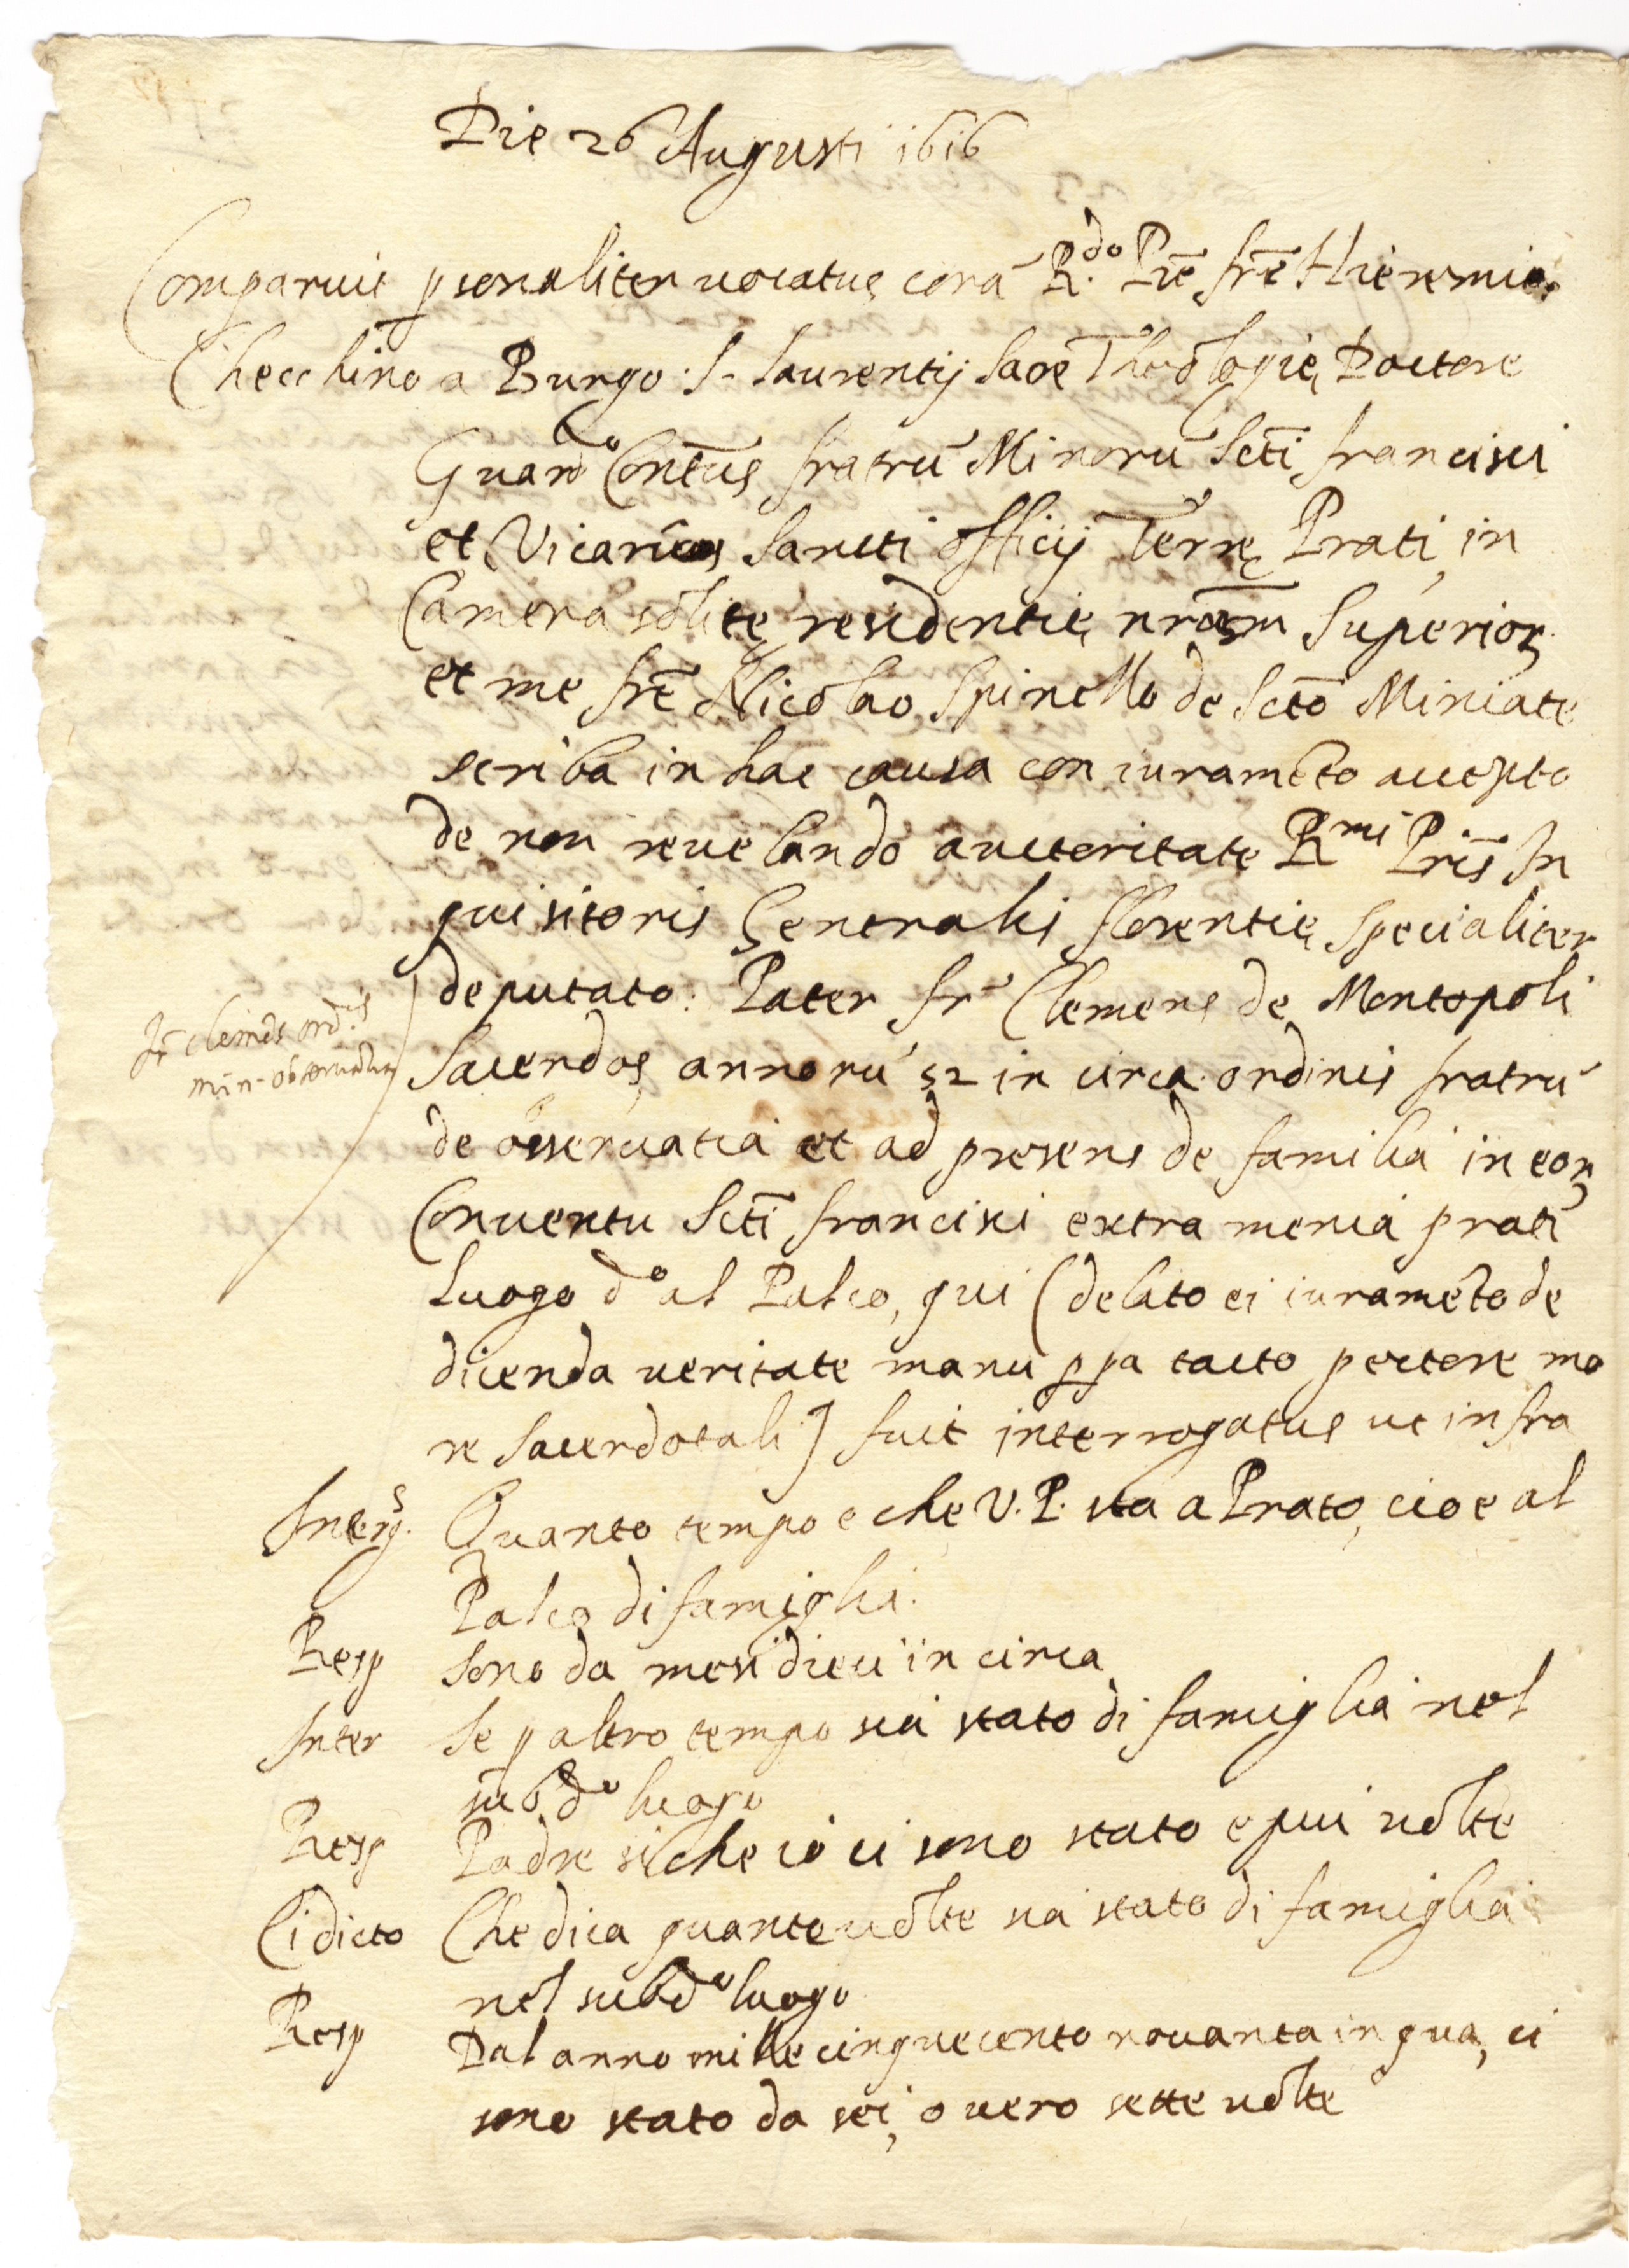 Die 26 Augusti 1616
Comparuit psonaliter uocatus corā R.do Prē frē Hieremia
Checchino a Burgo S. Laurentij Sacrē Theologię Doctore
Guardo Contūs fratrū Minorū Scti francisci
et Vicarios Sancti officij Terrę Prati in
Camera solitę residentię nrōrm Superior
et me frē Nicolao Spinello de Scto Miniate
scriba in hac causa con iuramēto accepto
de non reuelando auctoritate Rmi Pris In
quisitoris Generalis florentię specialiter
deputato: Pater fr Clemens de Montopoli
fr Clemēs ordis
min. obseruātia
Sacerdos annorū 52 in circa ordinis fratrū
de osseruātia et ad presens de familia in eor
Conuentu Scti francisci extra menia prati
luogo do al Palco, qui (delato ei iuramēto de
dicenda ueritate manu ppa tacto pectore mo
re sacerdotali) fuit interrogatus ut infra
Interg. Quanto tempo e che V.P. sta a Prato, cioe al
Palco di famiglia.
Resp Sono da mesi dieci in circa
Inter Se p altro tempo sia stato di famiglia nel
subdo luogo
Resp Padre si che io ci sono stato e piu uolte
Ei dicto Che dica quante uolte sia stato di famiglia
nel subdo luogo
Resp Dal anno mille cinquecento nouanta in qua, ci
sono stato da sei, o uero sette uolte